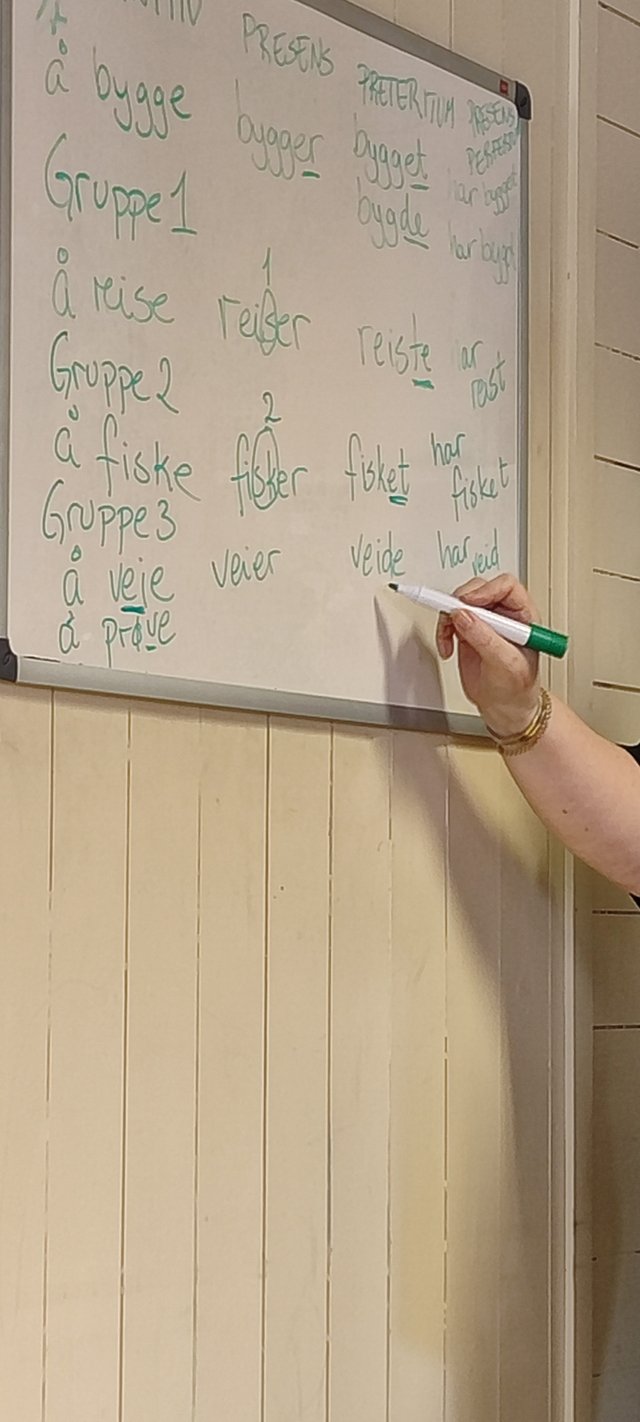 PRESENS PRETERITUM PRESENS PERFEKTUM
å bygge bygger bygget har bygget
Gruppe 1 bygde har bygd
1
å reise reiser reiste har reist
Gruppe 2
2
å fiske fisker fisket har fisket
Gruppe 3
å veie veier veide har veid
å prøve